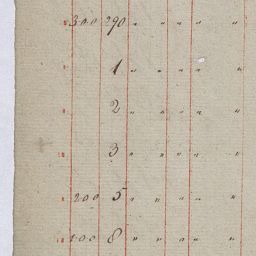 300 290 " " " " "
1 " " " " "
2 " " " " "
3 " " " " "
200 5 " " " " "
100 8 " " " " "